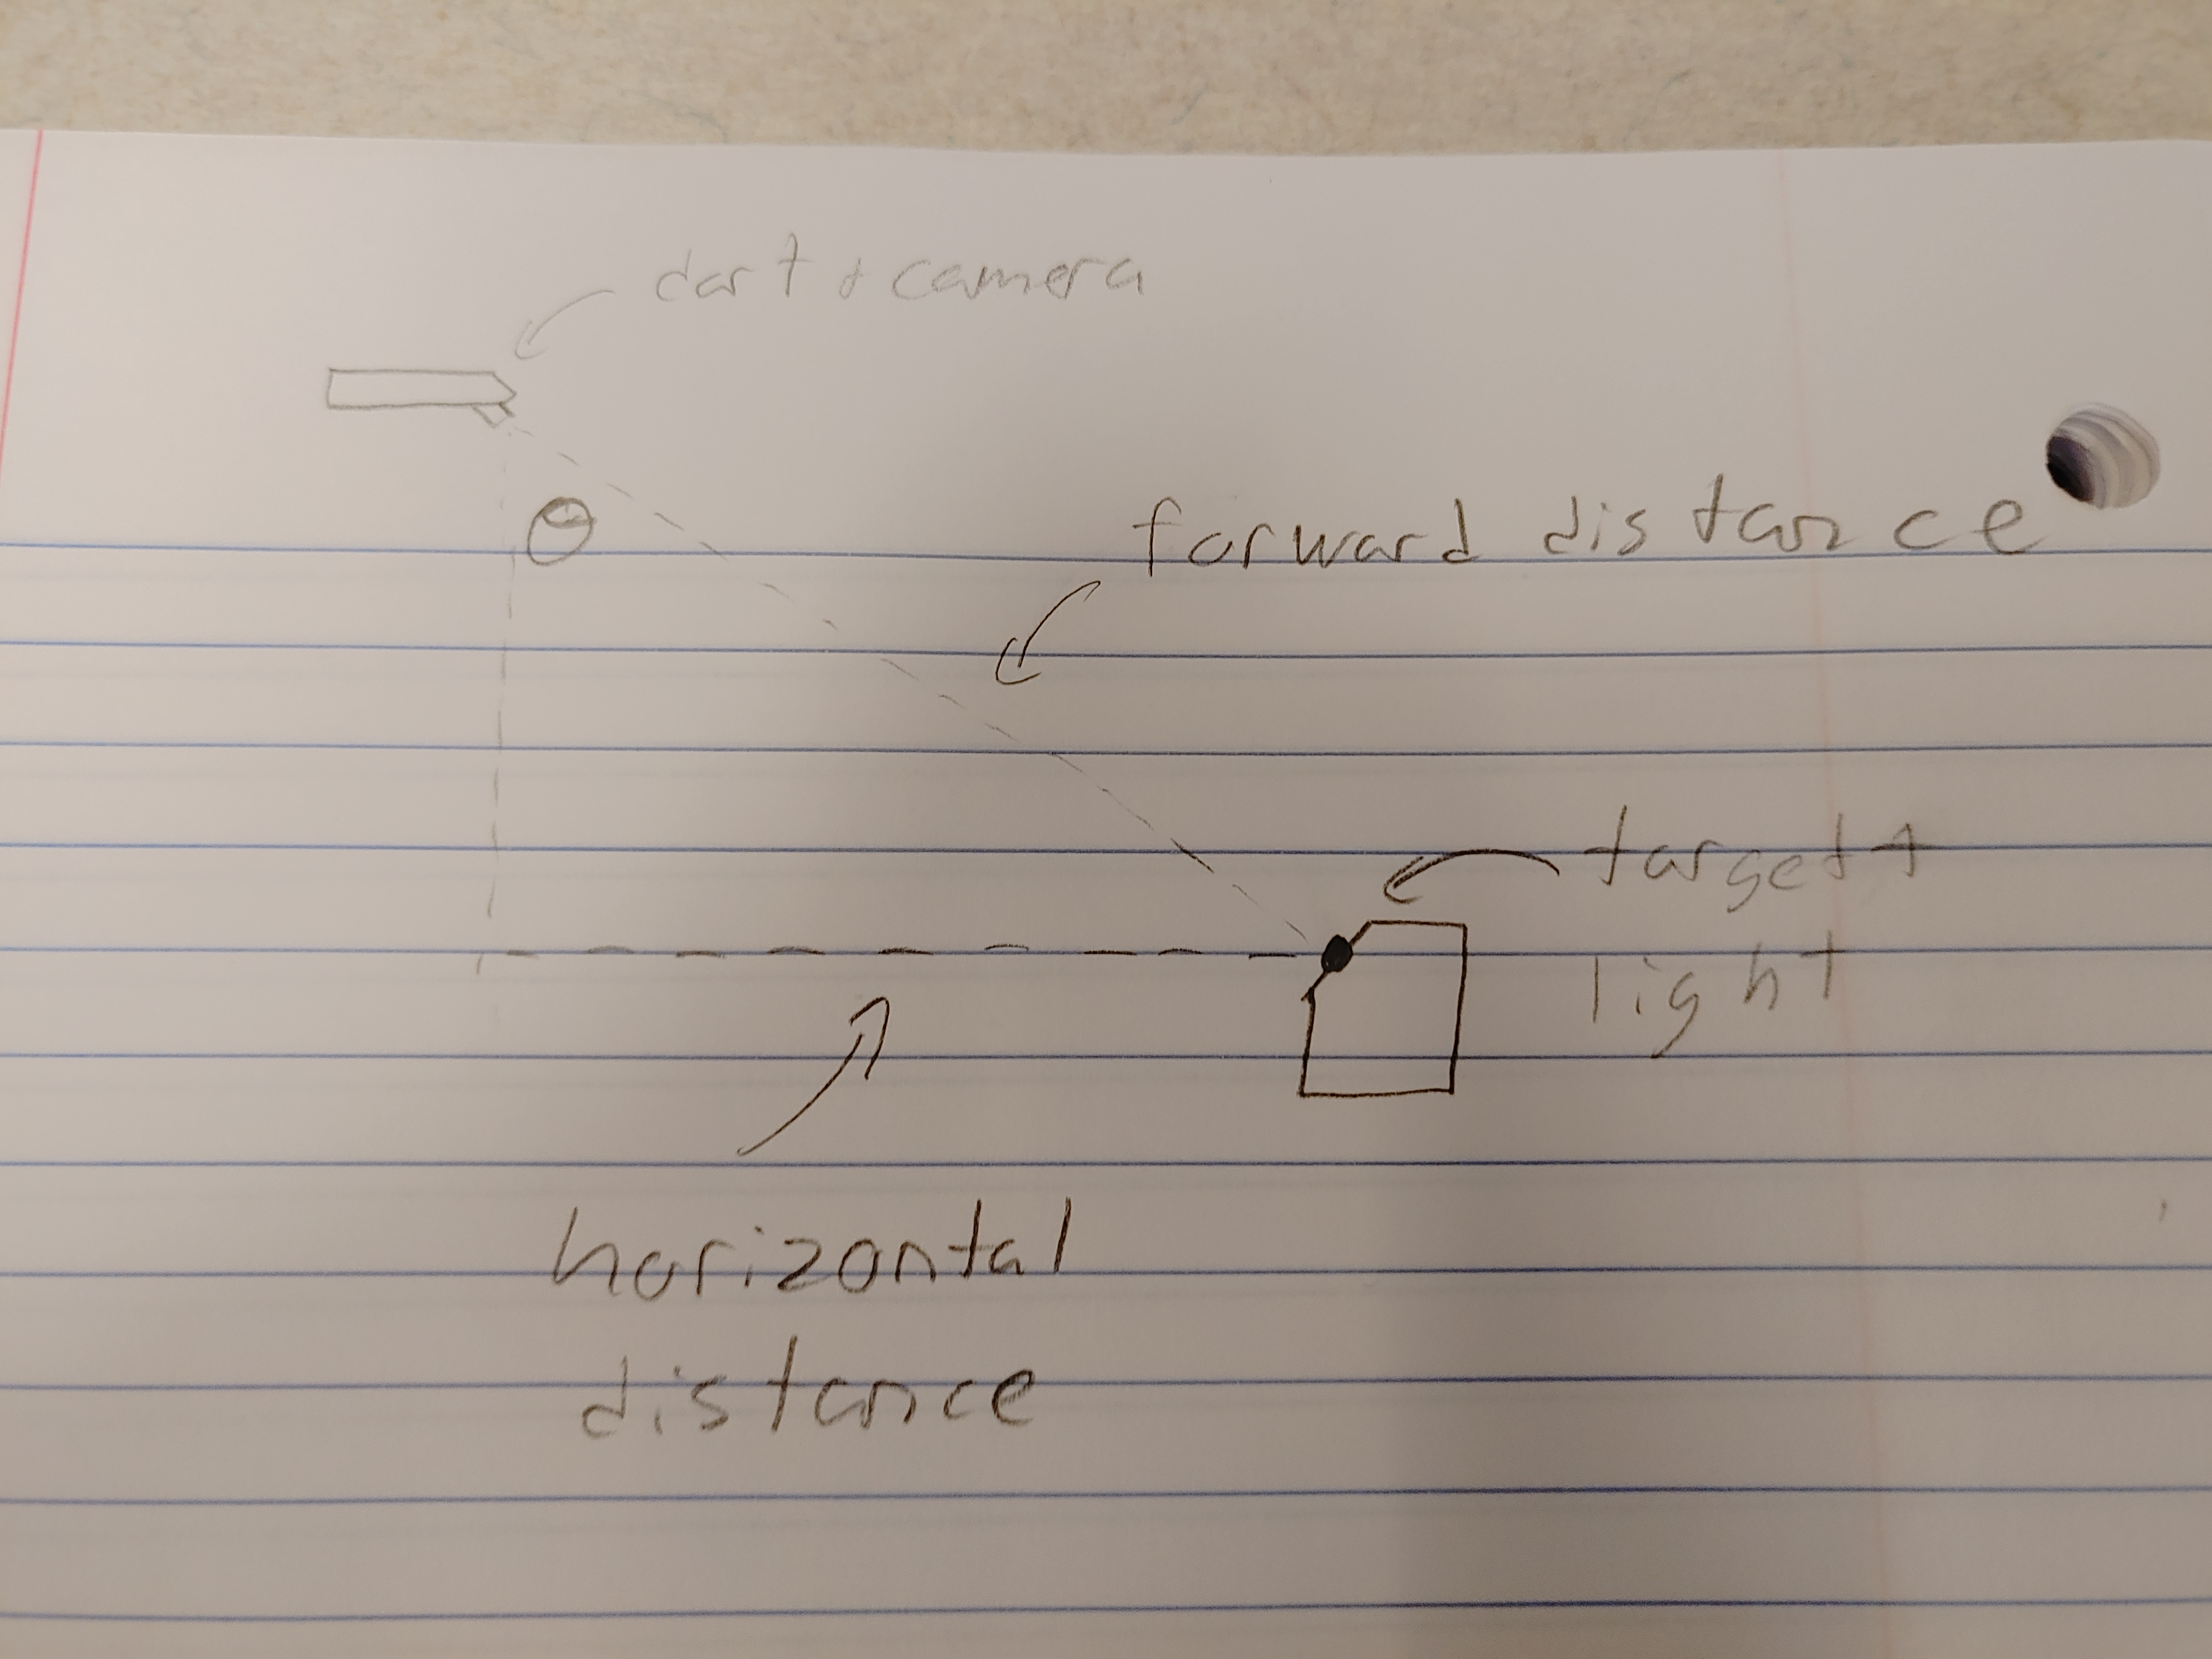 dart + camera
θ
forward distance
target +
light
horizontal
distance